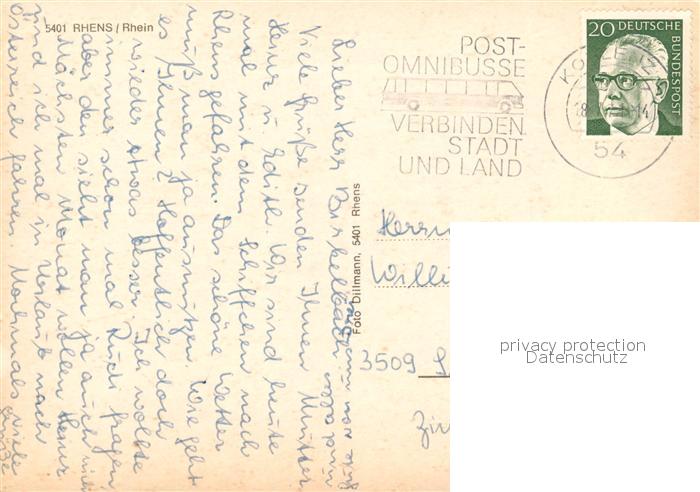 5401 RHENS / Rhein
POST-
OMNIBUSSE
VERBINDEN
STADT
UND LAND
20 DEUTSCHE
BUNDESPOST
54
Foto Dillmann, 5401 Rhens
Lieber Herr
Viele Grüße senden Ihnen Mutter
Heinz u. Edith. Wir sind heute
mal mit dem Schiffchen nach
Rhens gefahren. Das schöne Wetter
muß man ja ausnützen. Wie geht
es Ihnen? Hoffentlich doch
wieder etwas besser. Ich wollte
immer schon mal Ruch fragen
aber den sieht man ja auch nicht
Nächsten Monat wollen Heinz
und ich mal in Urlaub nach
Österreich fahren. Nochmals viele
Grüße
Herrn
Willi
3509
privacy protection
Datenschutz